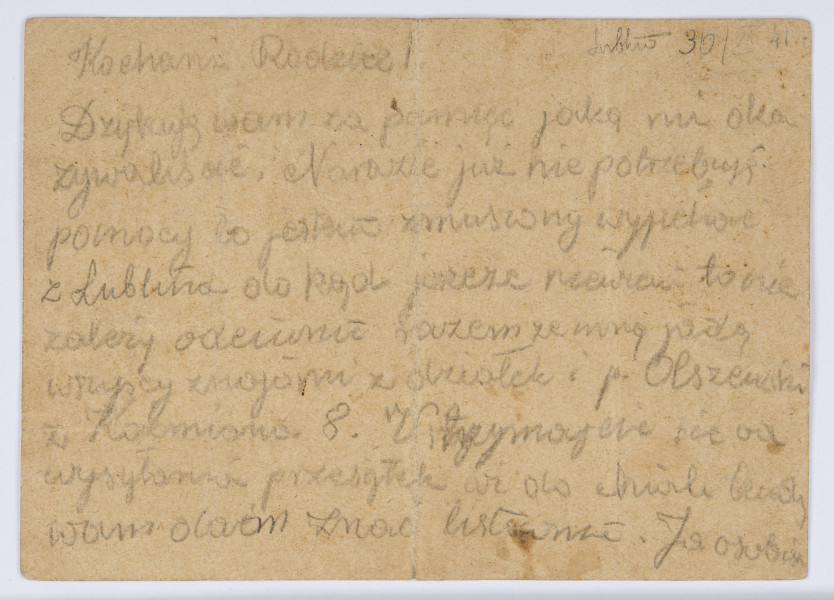 Lublin 30/VII 41.
Kochani Rodzice!
Dziękuję wam za pamięć jaką mi oka-
zywaliście. Narazie już nie potrzebuję
pomocy bo jestem zmuszony wyjechać
z Lublina do kąd jeszcze niewiem to nie
zależy odemnie razem ze mną jadą
wszyscy znajomi z działek i p. Olszewski
z Koźmiana 8. Wstrzymajcie się od
wysyłania przesyłek aż do chwili kiedy
wam dam znać listownie. Ja osobiś